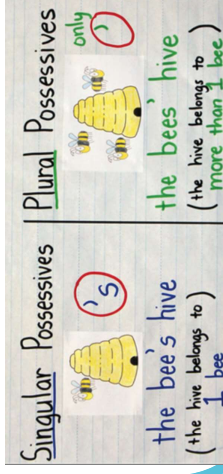 Singular Possessives
's
the bee's hive
(the hive belongs to
1 bee
Plural Possessives
only
'
the bees' hive
(the hive belongs to
more than 1 bee)